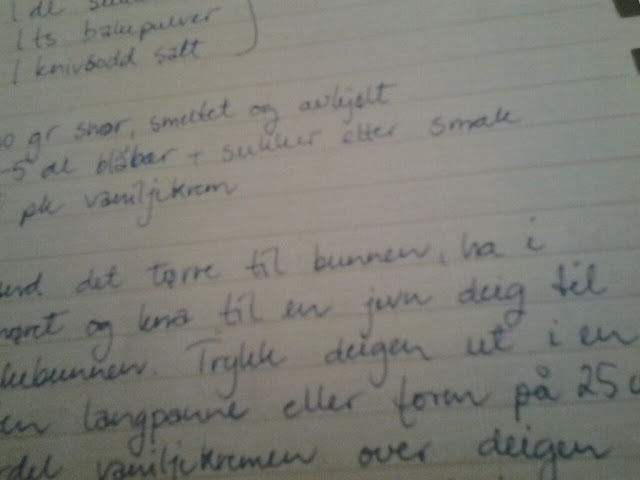 1 dl
1 ts bakepulver
1 knivsodd salt
0 gr smør, smeltet og avkjølt
-5 dl blåbær + sukker etter smak
pk vaniljekrem
det tørre til bunnen, ha i
og kna til en jevn deig til
kebunnen. Trykk deigen ut i en
en langpanne eller form på 25 c
rdel vaniljekremen over deigen